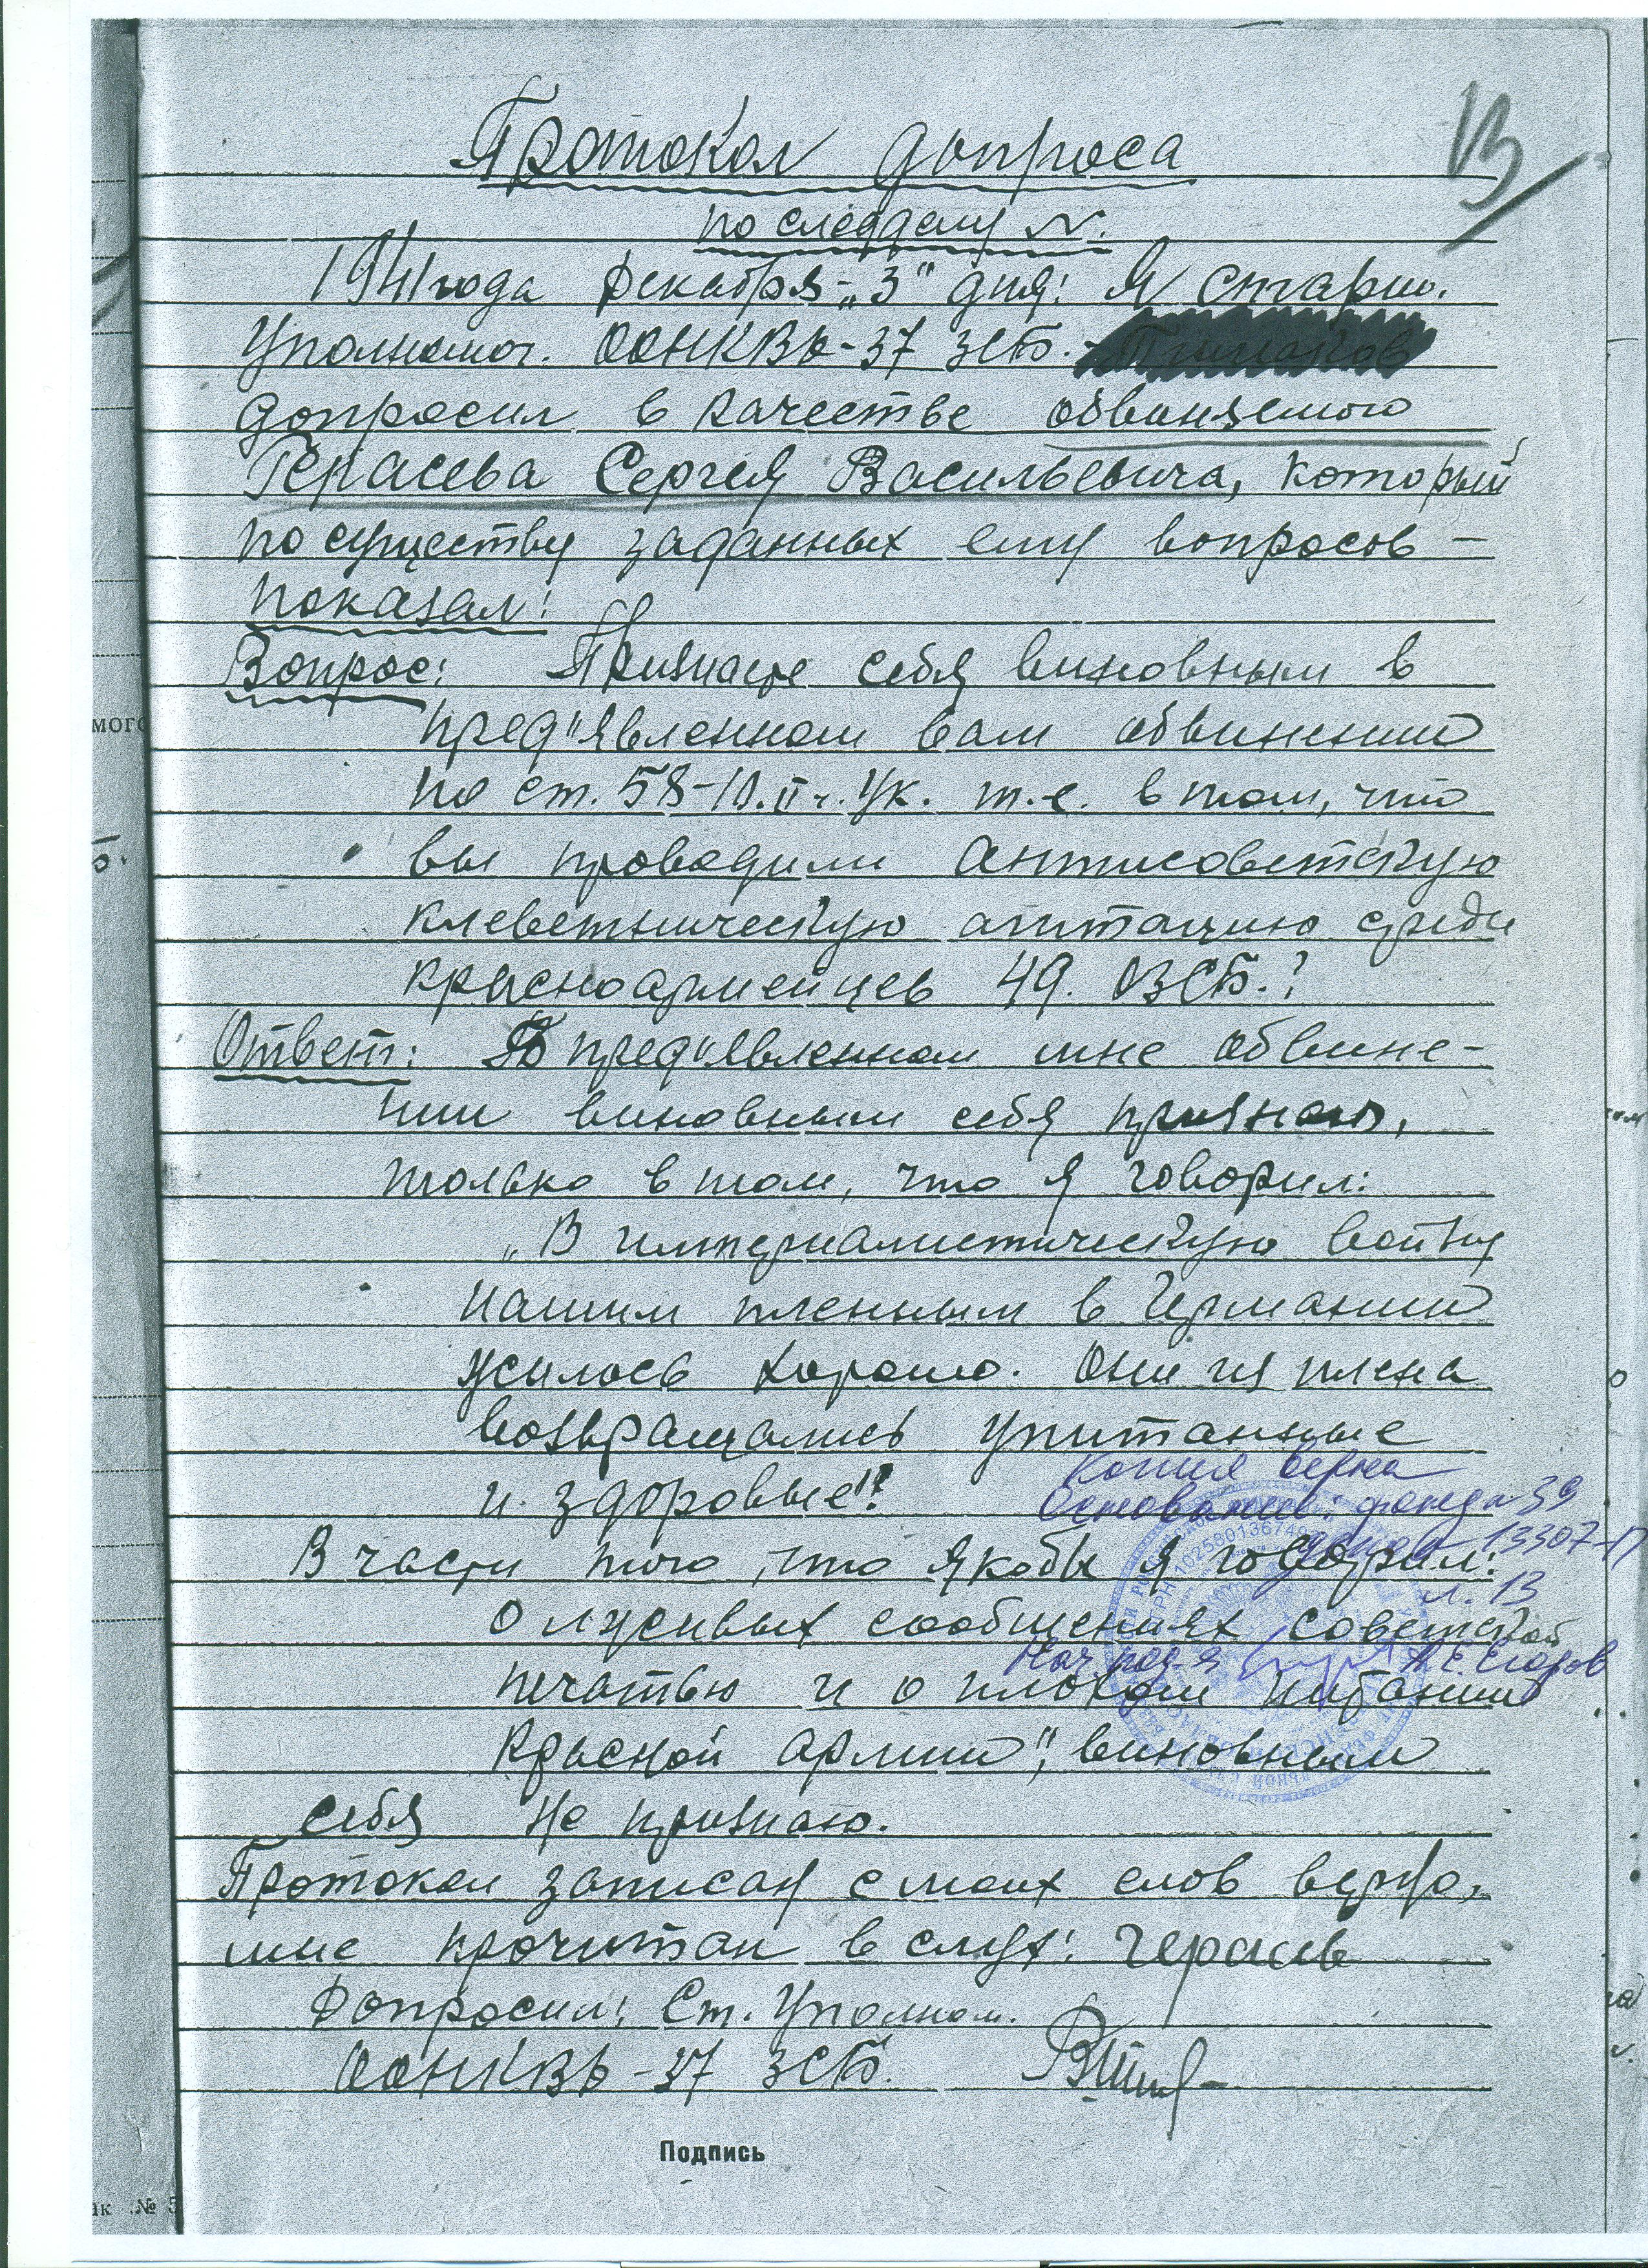 13
Протокол допроса
по следделу №.
1941 года декабря „3" дня: Я старш.
Уполномоч. ООНКВД-37 ЗСБ.
допросил в качестве обвиняемого
Герасева Сергея Васильевича, который
по существу заданных ему вопросов —
показал:
Вопрос: Признаете себя виновным в
пред"явленном вам обвинении
по ст. 58-10. II ч. УК. т.е. в том, что
вы проводили антисоветскую
клеветническую агитацию среди
красноармейцев 49. ОЗСБ.?
Ответ: В пред"явленном мне обвине-
нии виновным себя признаю,
только в том, что я говорил:
„В империалистическую войну
нашим пленным в Германии
жилось хорошо. Они из плена
возвращались упитанные
и здоровые"?
Копия верна
Основание: фонд р-39
13307-П
л. 13
В части того, что якобы я говорил:
о лживых сообщениях советской
печатью и о плохом питании
Красной армии", виновным
себя не признаю.
Нач. А.Е. Егоров
1025801367
Протокол записан с моих слов верно,
мне прочитан в слух: Герасев
Допросил: Ст. Уполном.
ООНКВД-37 ЗСБ.
Подпись
мого
ак № 5